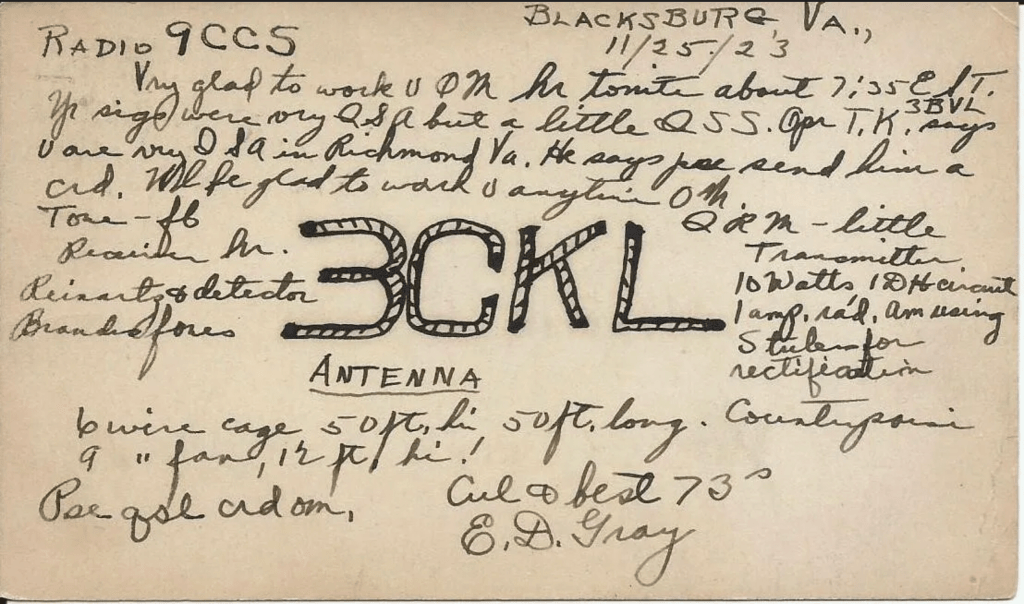 BLACKSBURG, VA.,
RADIO 9CCS
11/25/23
Vry glad to work U OM hr tonite about 7:35 E.S.T.
Yr sigs were vry QSA but a little QSS. Opr T.K. 3BVL says
U are vry QSA in Richmond Va. He says pse send him a
crd. Wll be glad to work U anytime OM.
Tone - fb
Receiver hr.
Reinartz & detector
Brandes fones
3CKL
QRM - little
Transmitter
10 Watts 1DH circuit
1 amp. rad. Am using
for
rectification
ANTENNA
6 wire cage 50 ft. hi 50 ft. long. Counterpoise
9 " fan, 12 ft. hi!
Pse qsl crd om,
Cul & best 73s
E. D. Gray